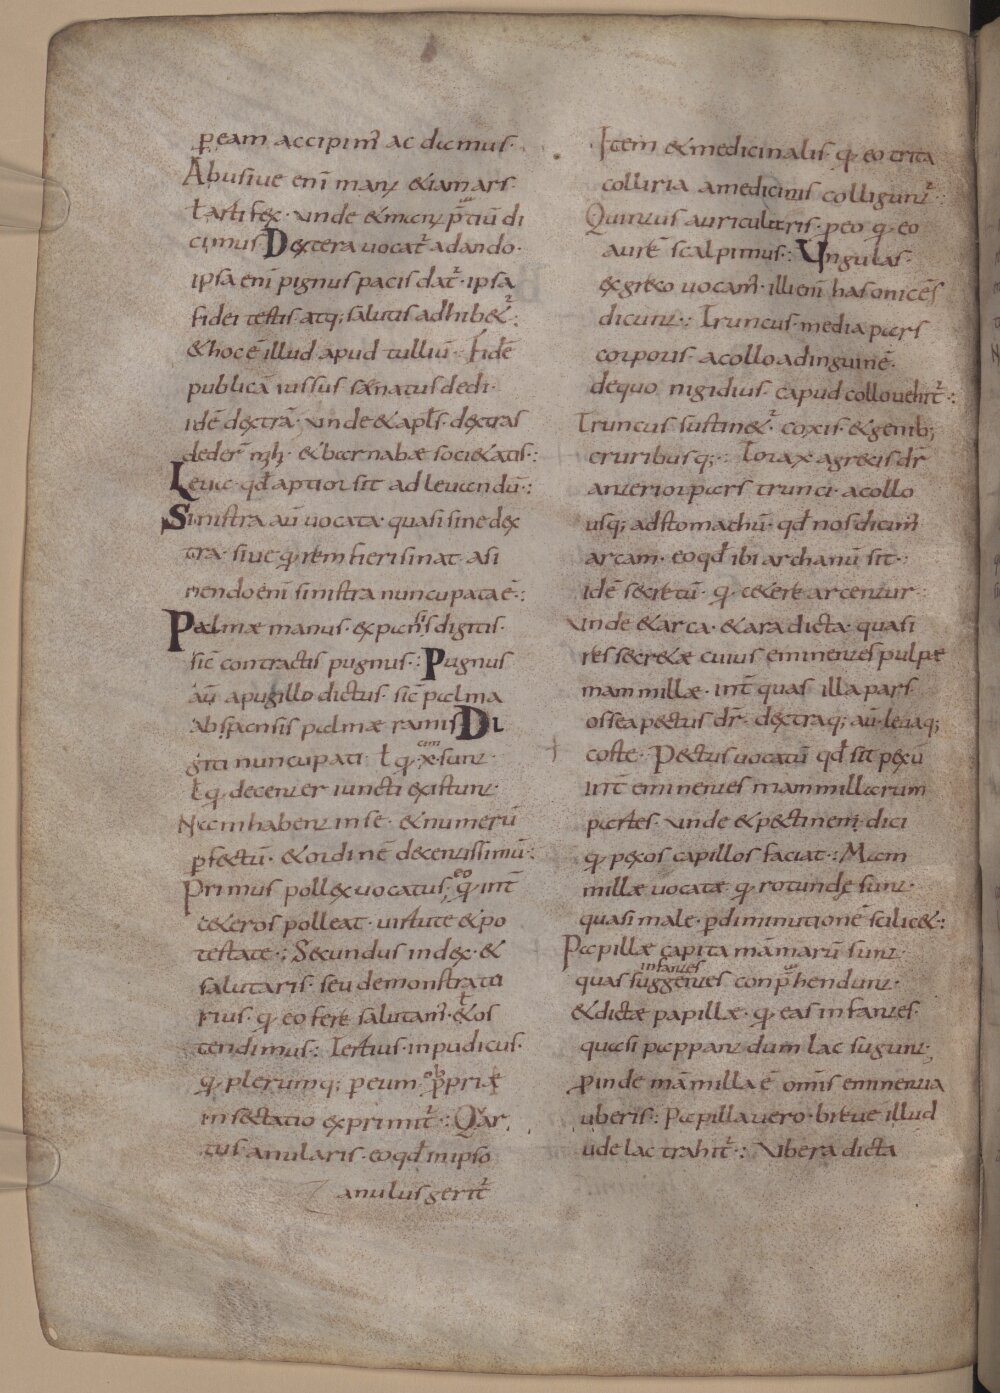 ꝑeam accipim᷒ ac dicmus·
Abusiue eni᷒ manꝰ &iam ars
ł artifex· unde &manꝰ p̄tiū di
cimus Dextera uocat᷒ adando·
ipsa enī pignus pacis dat᷒· ipsa
fidei testis atq; salutis adhibet᷒;
&hoc ē illud apud tulliū· Fidē
publicā iussus sænatus dedi·
idē dextrā· unde & apłs· dextras
deder̄ mh̄· &barnabæ soci&atis·:
Leua· qd̄ aptior sit ad leuandū·:
Sinistra aū uocata quasi sine dex
tra· siue q̨ rem fieri sinat· asi
nendo enī sinistra nuncupata ē·:
Palmæ manus· expansis digitis·
sic̄ contractis pugnus·: Pugnus
aū apugillo dictus· sic̄ palma
abspansis palmæ ramis Di
giti nuncupati· ł q̨ x cim sunt·
ł q̨ decenter iuncti existunt·
Nam habent inse· & numerū
ꝑfectū· & ordinē decentissimū·:
Primus pollex uocatus· eo q̨ int̄
c&eros polleat· uirtute & po
testate·: Secundus index· &
salutaris· seu demonstrato
rius· q̨ eo fere salutam᷒· ł os
tendimus·: Tertius· inpudicus·
q̨ plerumq; ꝑeum ob ꝓpriæ
insectatio exprimit᷒·: Qar
tus anularis· eoqd̄ inipso
anulus gerit᷒
Item & medicinalis· q̨ eo trita
colliria amedicinis colligunt᷒·
Quintus auricularis· ꝑeo q̨ eo
aurē scalpimus·: Ungulas·
exgreco uocam᷒· illi enī has onicēs
dicunt·: Truncus· media pars
corporis acollo adinguinē·
dequo nigidius· caput collo uehit᷒·:
Truncus sustinet᷒· coxis &genib;
cruribusq;·: Torax agrecis dr̄
anterior pars trunci· acollo
usq; adstomachū· qd̄ nos dicim᷒
arcam· eoqd̄ ibi archanū sit·
idē secretū· q̨ c&ere arcentur·
Unde &arca· & ara dicta· quasi
res secretæ cuius eminentes pulpæ
mammillæ· int̄ quas illa pars
ossea pectus dr̄· dextraq; aū· leuaq;
coste· Pectus uocatū qd̄ sit pexū
int̄ eminentes mammillarum
partes· unde & pectinem dici
q̨ pexos capillos faciat·: Mam
millæ uocatæ q̨ rotundę sunt·
quasi male· ꝑdiminutionē scilic&·:
Papillæ capita māmarū sunt·
quas suggentes infantes conp̄hendunt·
& dictæ papillæ· q̨ eas infantes·
quasi pappant dum lac sugunt;
ꝓinde māmilla ē omīs eminentia
uberis·: Papilla uero· breue illud
ude lac trahit᷒·: Ubera dicta